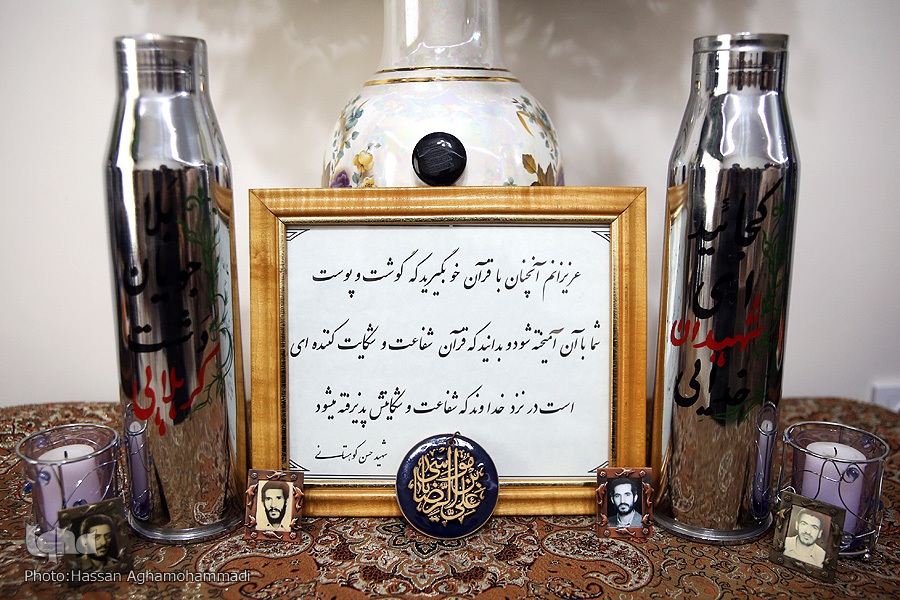 کجائید
ای
شهیدان
خدایی
عزیزانم آنچنان با قرآن خو بگیرید که گوشت و پوست
شما با آن آمیخته شود و بدانید که قرآن شفاعت و شکایت کننده ای
است در نزد خداوند که شفاعت و شکایتش پذیرفته میشود
شهید حسن کوهستانی
بلا
جویان
دشت
کربلایی
علی بن موسی الرضا
iqna
Photo:Hassan Aghamohammadi